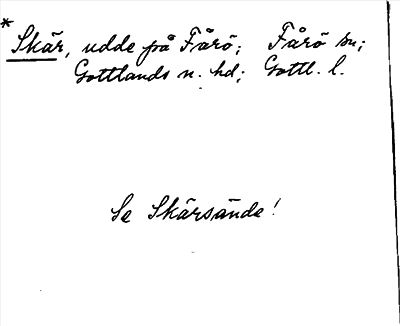 *Skär, udde på Fårö; Fårö sn;
Gottlands n. hd; Gottl. l.
Se Skärsände!